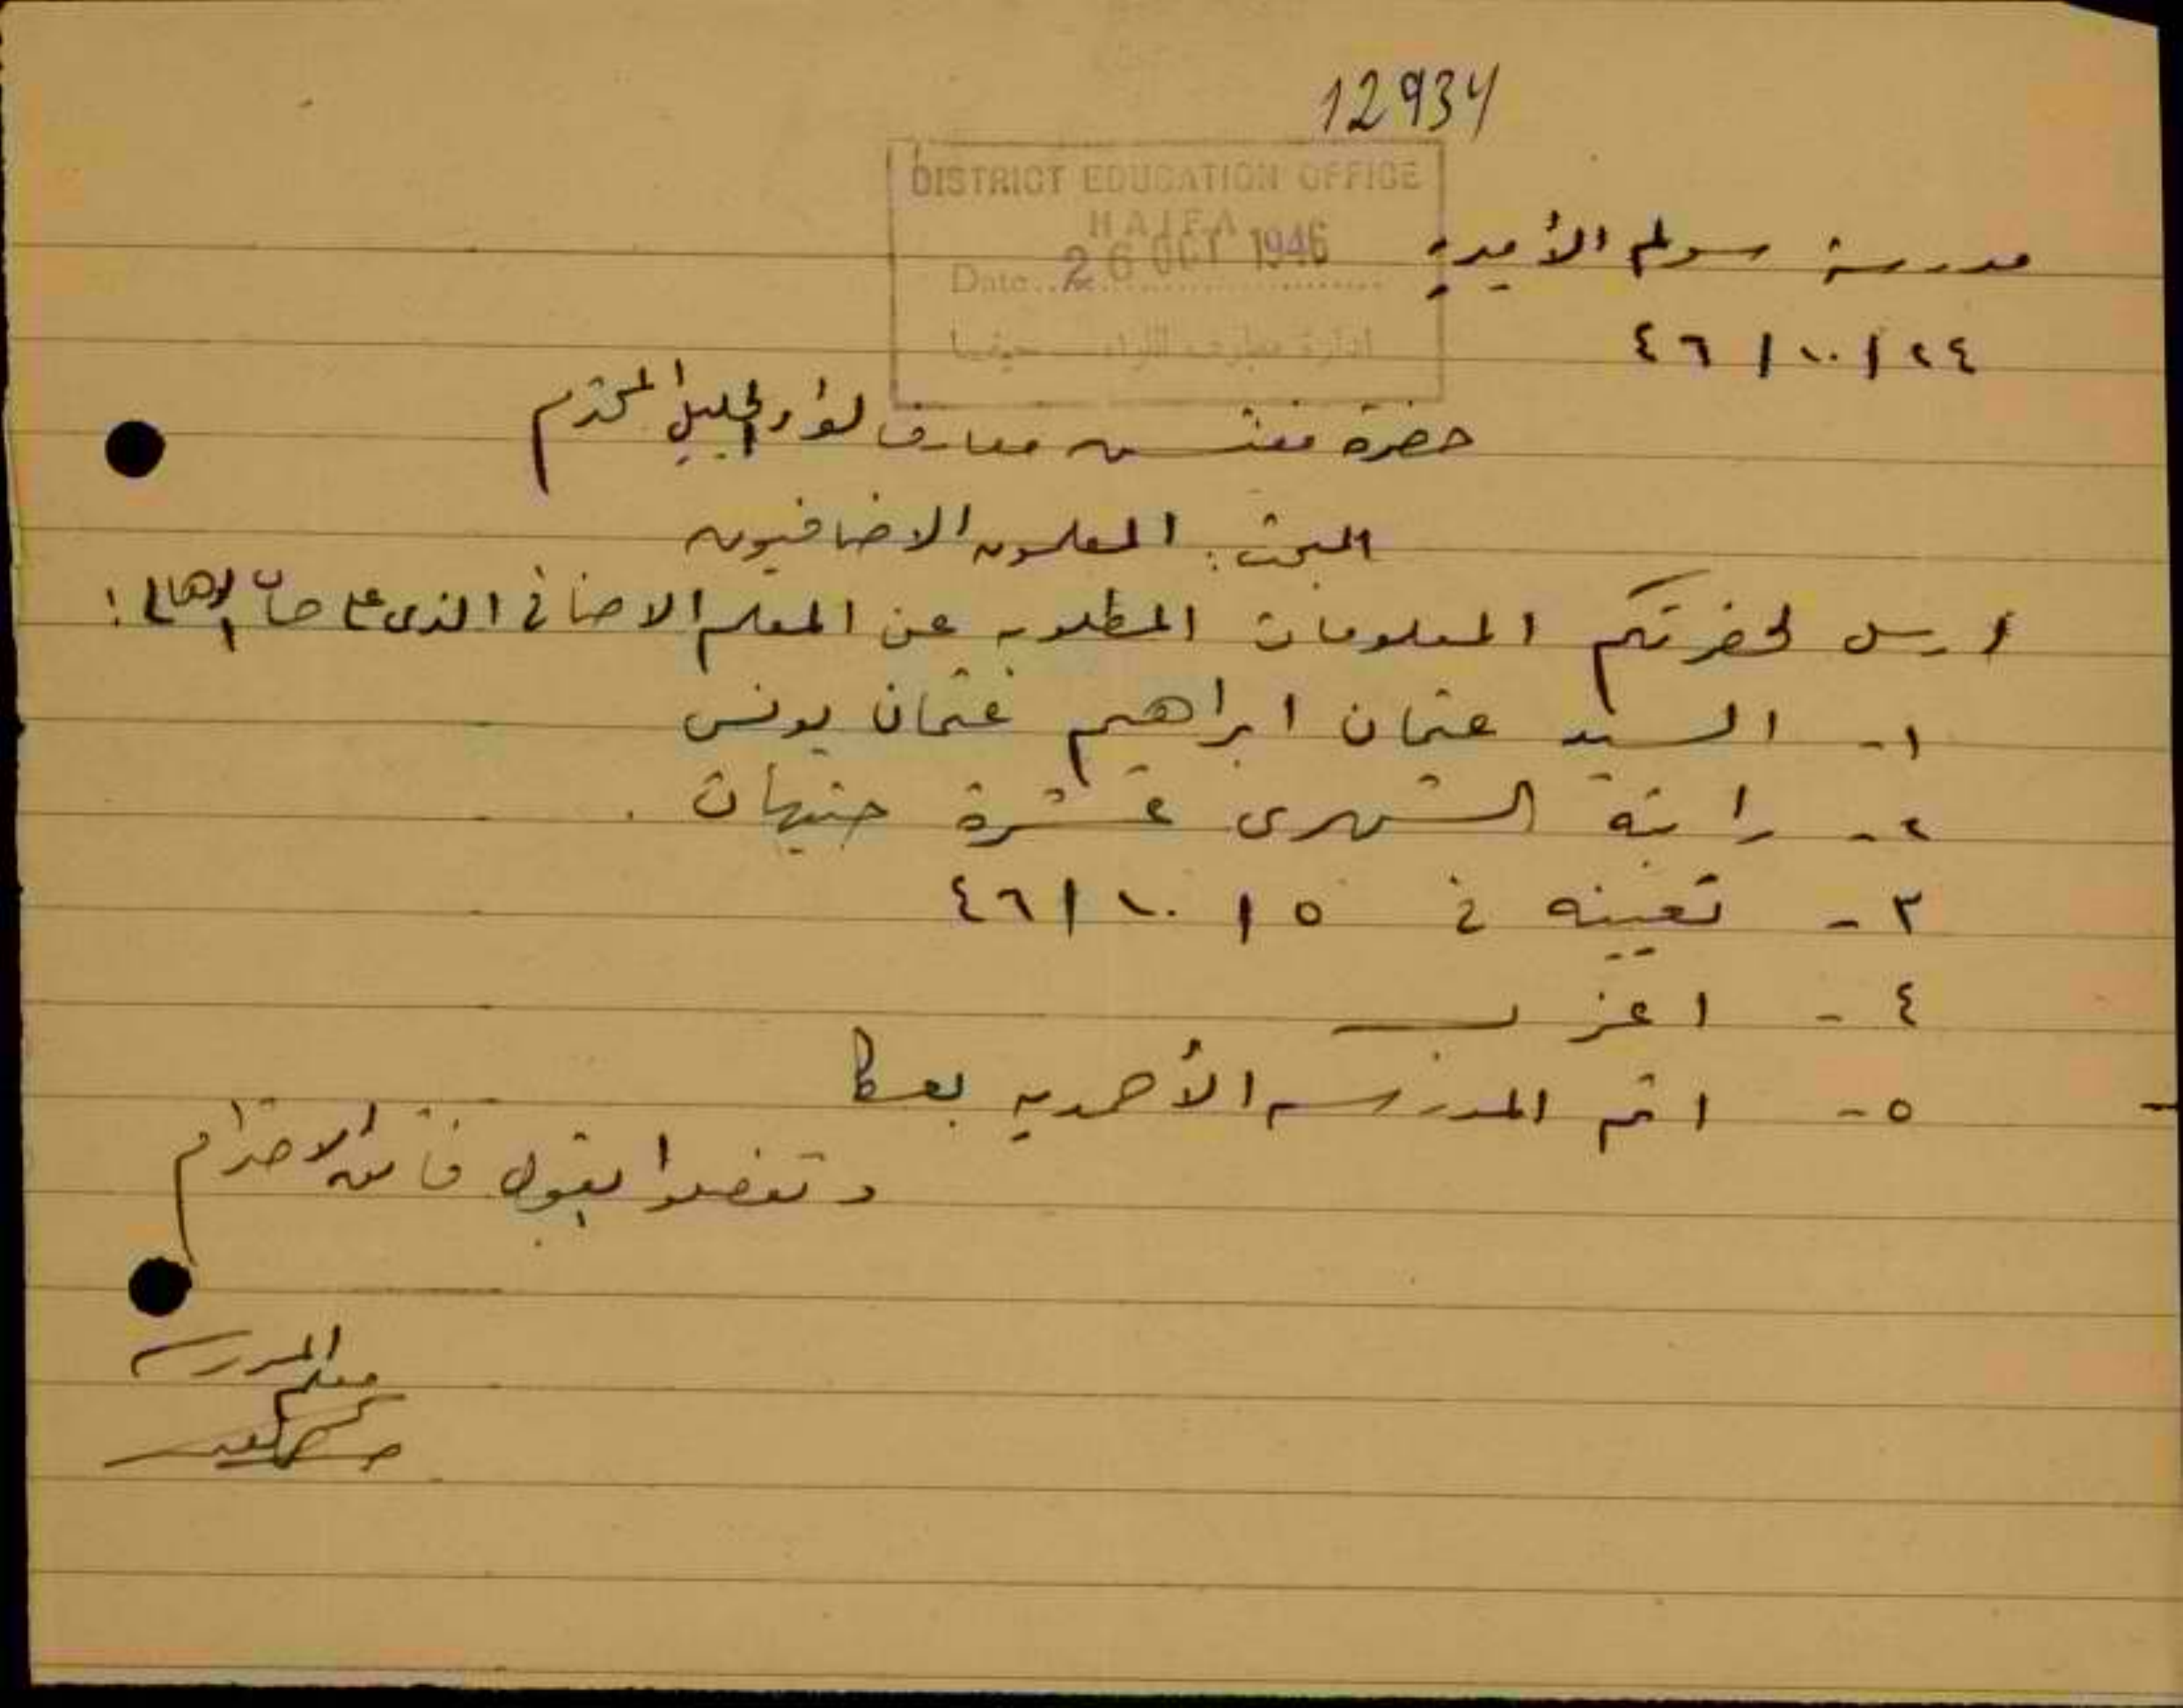 12934
DISTRICT EDUCATION OFFICE
HAIFA
Date 26 OCT 1946
ادارة معارف اللواء - حيفا
مدرسة سولم الأميرية
٢٤ / ١٠ / ٤٦
حضرة مفتش معارف لواء الجليل المحترم
المبحث : المعلمون الاضافيون
ارسل لحضرتكم المعلومات المطلوبه عن المعلم الاضافي الذى على حساب الاهالي :
١- السيد عثمان ابراهيم عثمان يونس
٢- راتبه الشهرى عشرة جنيهات .
٣- تعيينه في ٥ / ١٠ / ٤٦
٤- اعزب
٥- اتم المدرسه الأحمديه بعكا
وتفضلوا بقبول فائق الاحترام
معلم المدرسه